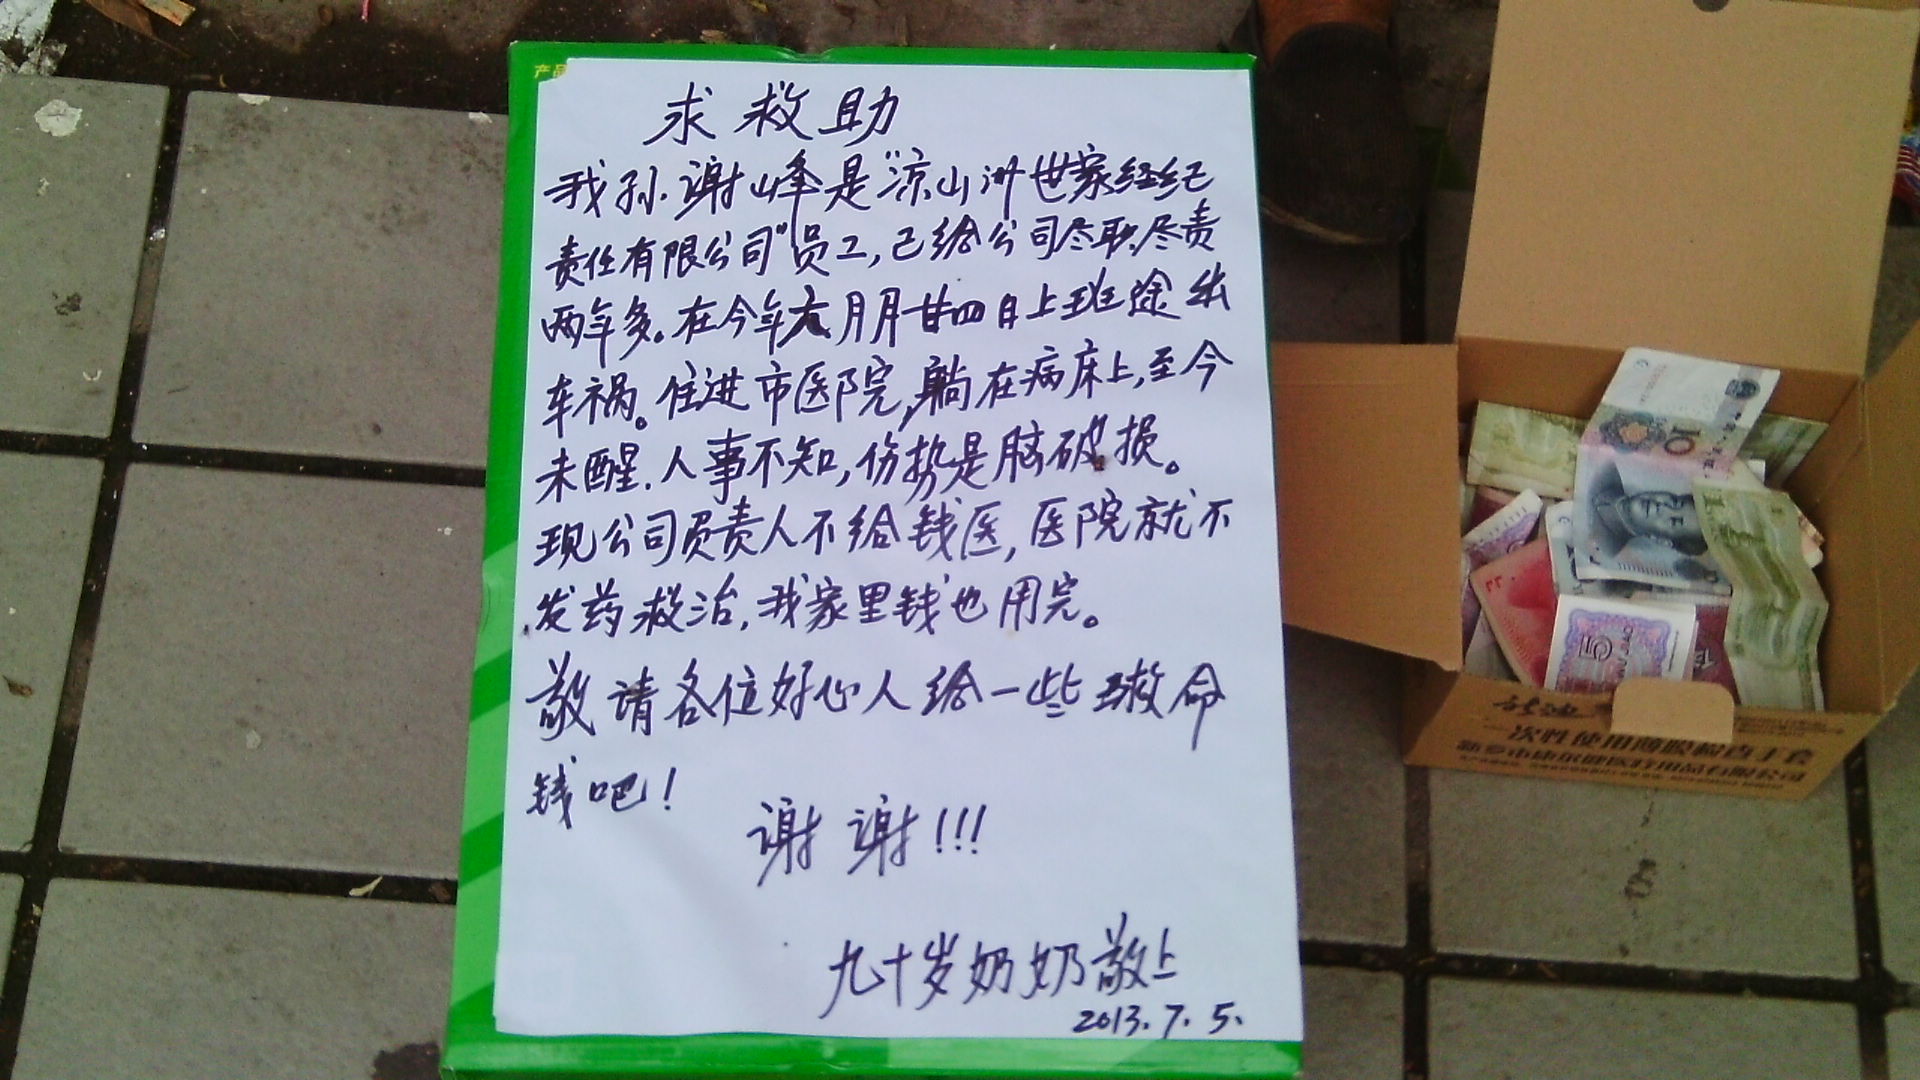 产品
求救助
我孙谢峰是“凉山洲世家经纪
责任有限公司”员工,已给公司尽职尽责
两年多。在今年六月月廿四日上班途出
车祸。住进市医院,躺在病床上,至今
未醒.人事不知,伤势是脑破损。
现公司负责人不给钱医,医院就不
发药救治,我家里钱也用完。
敬请各位好心人给一些救命
钱吧!
谢谢!!!
九十岁奶奶敬上
2013.7.5.
10
5
WU JIAO
一次性使用薄膜检查手套
新乡市康尔健医疗用品有限公司